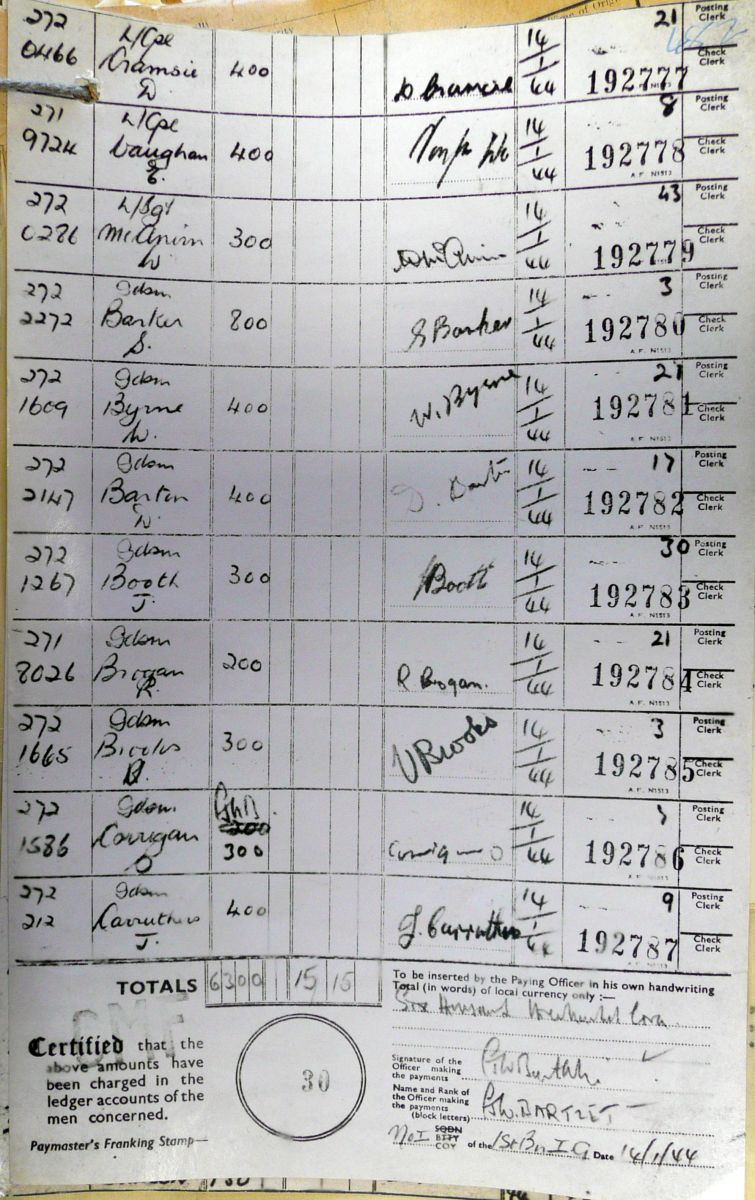 272 L/Cpl 14 21 Posting Clerk
0466 Cramsie 400 1 192777 Check Clerk
D 44 A.F. N1513
271 L/Cpl 14 8 Posting Clerk
9724 Vaughan 400 1 192778 Check Clerk
44 A.F. N1513
272 L/Sgt 14 43 Posting Clerk
0286 300 1 192779 Check Clerk
W 44
272 Gdsm 14 3 Posting Clerk
2272 Barker 800 S Barker 1 192780 Check Clerk
S. 44 A.F. N1513
272 Gdsm 14 27 Posting Clerk
1609 Byrne 400 W. Byrne 1 192781 Check Clerk
W. 44 A.F. N1513
272 Gdsm 14 17 Posting Clerk
2147 400 D. 1 192782 Check Clerk
D. 44 A.F. N1513
272 Gdsm 14 30 Posting Clerk
1267 Booth 300 Booth 1 192783 Check Clerk
J. 44 A.F. N1513
271 Gdsm 14 21 Posting Clerk
8026 Brogan 200 R Brogan. 1 192784 Check Clerk
R. 44 A.F. N1513
272 Gdsm 14 3 Posting Clerk
1665 Brooks 300 Brooks 1 192785 Check Clerk
44 A.F. N1513
272 Gdsm 200 14 Posting Clerk
1586 Corrigan 300 1 192786 Check Clerk
O 44 A.F. N1513
272 Gdsm 14 9 Posting Clerk
212 Carruthers 400 J. Carruthers 1 192787 Check Clerk
J. A.F. N1513
TOTALS 6300 15 15
To be inserted by the Paying Officer in his own handwriting
Total (in words) of local currency only :—
Six thousand three hundred
CMF
Certified that the
above amounts have
been charged in the
ledger accounts of the
men concerned.
Paymaster's Franking Stamp—
30
Signature of the
Officer making
the payments
Name and Rank of
the Officer making
the payments
(block letters)
No I SQDN
BTTY
COY of the 1st Bn I G Date 14/1/44